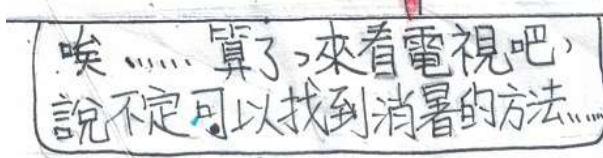 唉……算了,來看電視吧,
說不定可以找到消暑的方法……